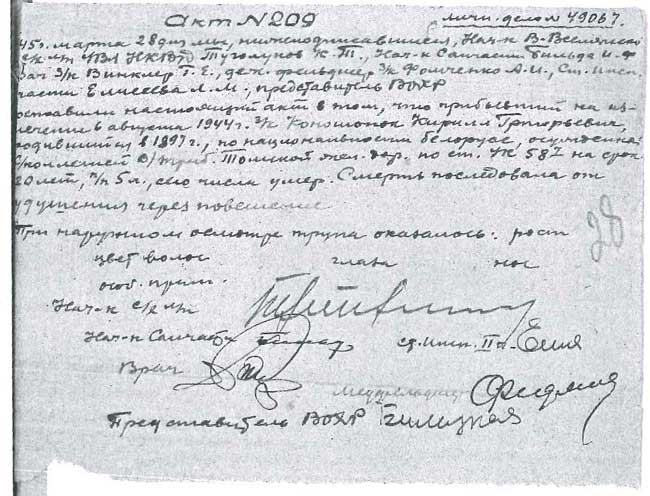 Акт N 209
личн. дело N 49067.
45г. марта 28 дня мы, нижеподписавшиеся, Нач-к В-Вселямско
УВЛ НКВД Туголуков К.Т., Нач-к Санчасти Бильда И.Ф.
врач З/к Винклер Г.Е., деж. фельдшер З/к Фомченко А.И., Ст. инсп.
части Елисеева Л.М., представитель ВОХР
составили настоящий акт в том, что прибывший на из-
лечение 6 августа 1944г. З/к Кононок Кирилл Григорьевич,
родившийся в 1897г., по национальности белорус, осужден
коллегией Томской жел. дор. по ст. УК 58 на срок
20 лет, п/п 5 л., сего числа умер. Смерть последовала от
удушения через повешение
При наружном осмотре трупа оказалось: рост
цвет волос глаза нос
особ. прим.
Нач-к
Нач-к Санчасти ст. инсп. II ч.
Врач
Медфельдшер
Представитель ВОХР
28